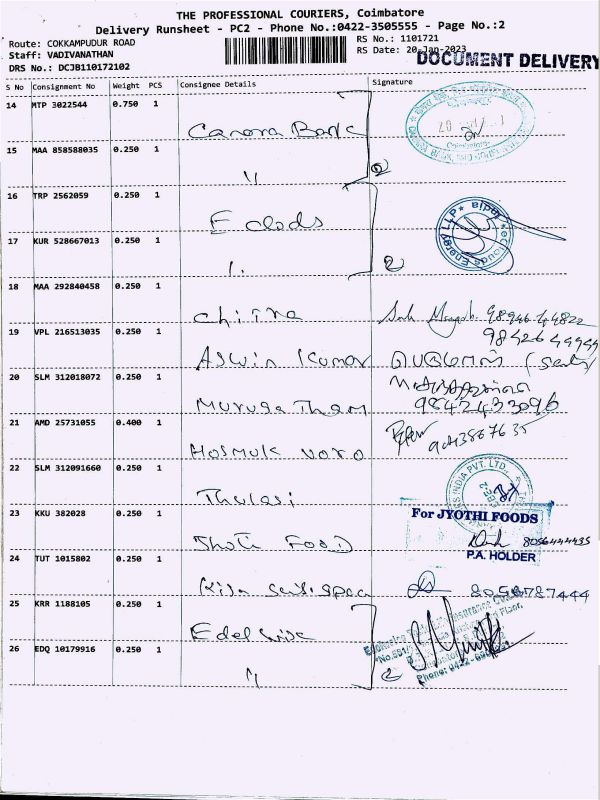 THE PROFESSIONAL COURIERS, Coimbatore
Delivery Runsheet - PC2 - Phone No.:0422-3505555 - Page No.:2
Route: COKKAMPUDUR ROAD
RS No.: 1101721
Staff: VADIVANATHAN
RS Date: 20-Jan-2023
DOCUMENT DELIVERY
DRS No.: DCJB110172102
S No Consignment No Weight PCS Consignee Details Signature
14 MTP 3022544 0.750 1
Canara Bank
15 MAA 858588035 0.250 1
"
16 TRP 2562059 0.250 1
E clouds
17 KUR 528667013 0.250 1
18 MAA 292840458 0.250 1
Chitra 98946 44822
19 VPL 216513035 0.250 1
98426 49949
Aswin Kumar
20 SLM 312018072 0.250 1
Muruga Tham 9842433096
21 AMD 25731055 0.400 1
Hosmuk voro
22 SLM 312091660 0.250 1
INDIA PVT. LTD.
Thulasi
23 KKU 382028 0.250 1
For JYOTHI FOODS
Jhoti Food 8056444435
24 TUT 1015802 0.250 1
P.A. HOLDER
8056787444
25 KRR 1188105 0.250 1
Edelwise
26 EDQ 10179916 0.250 1
"